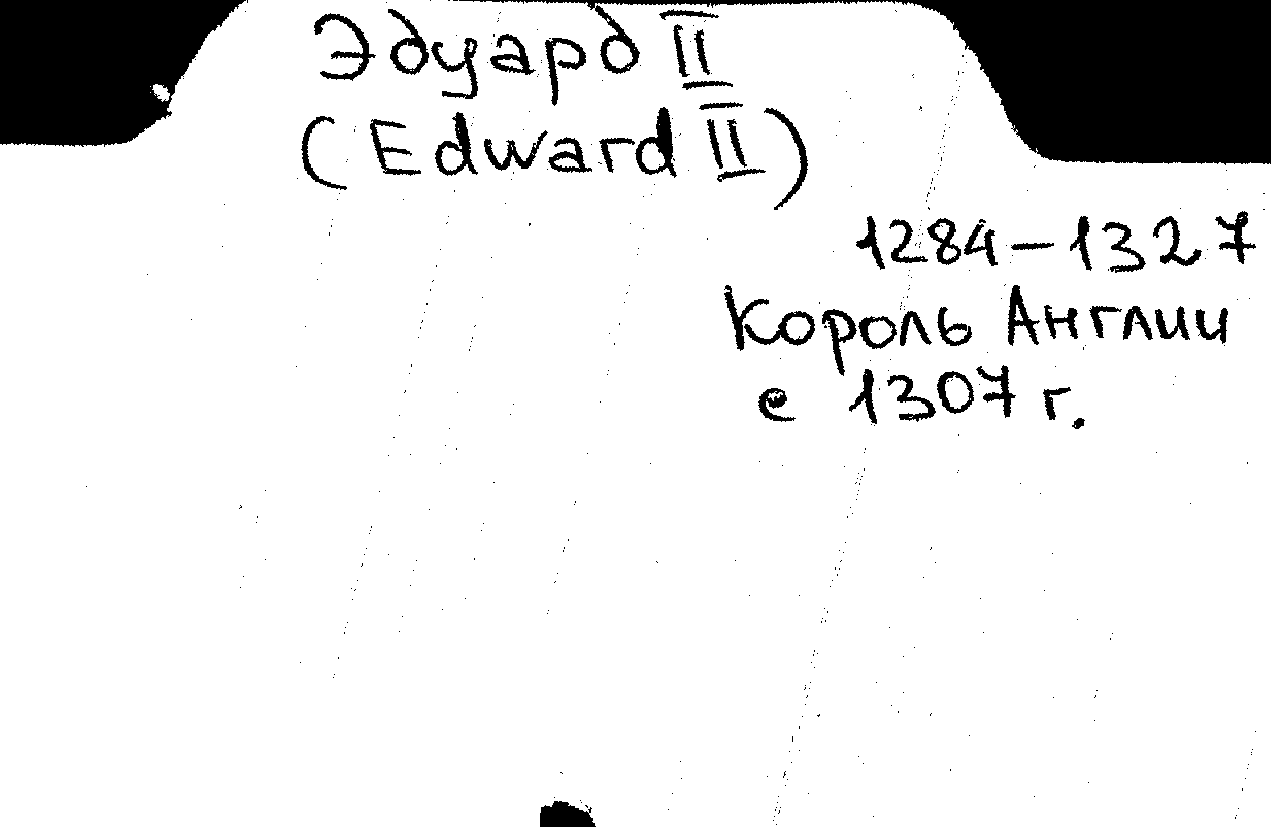 Эдуард II
(Edward II)
1284-1327
Король Англии
с 1307 г.